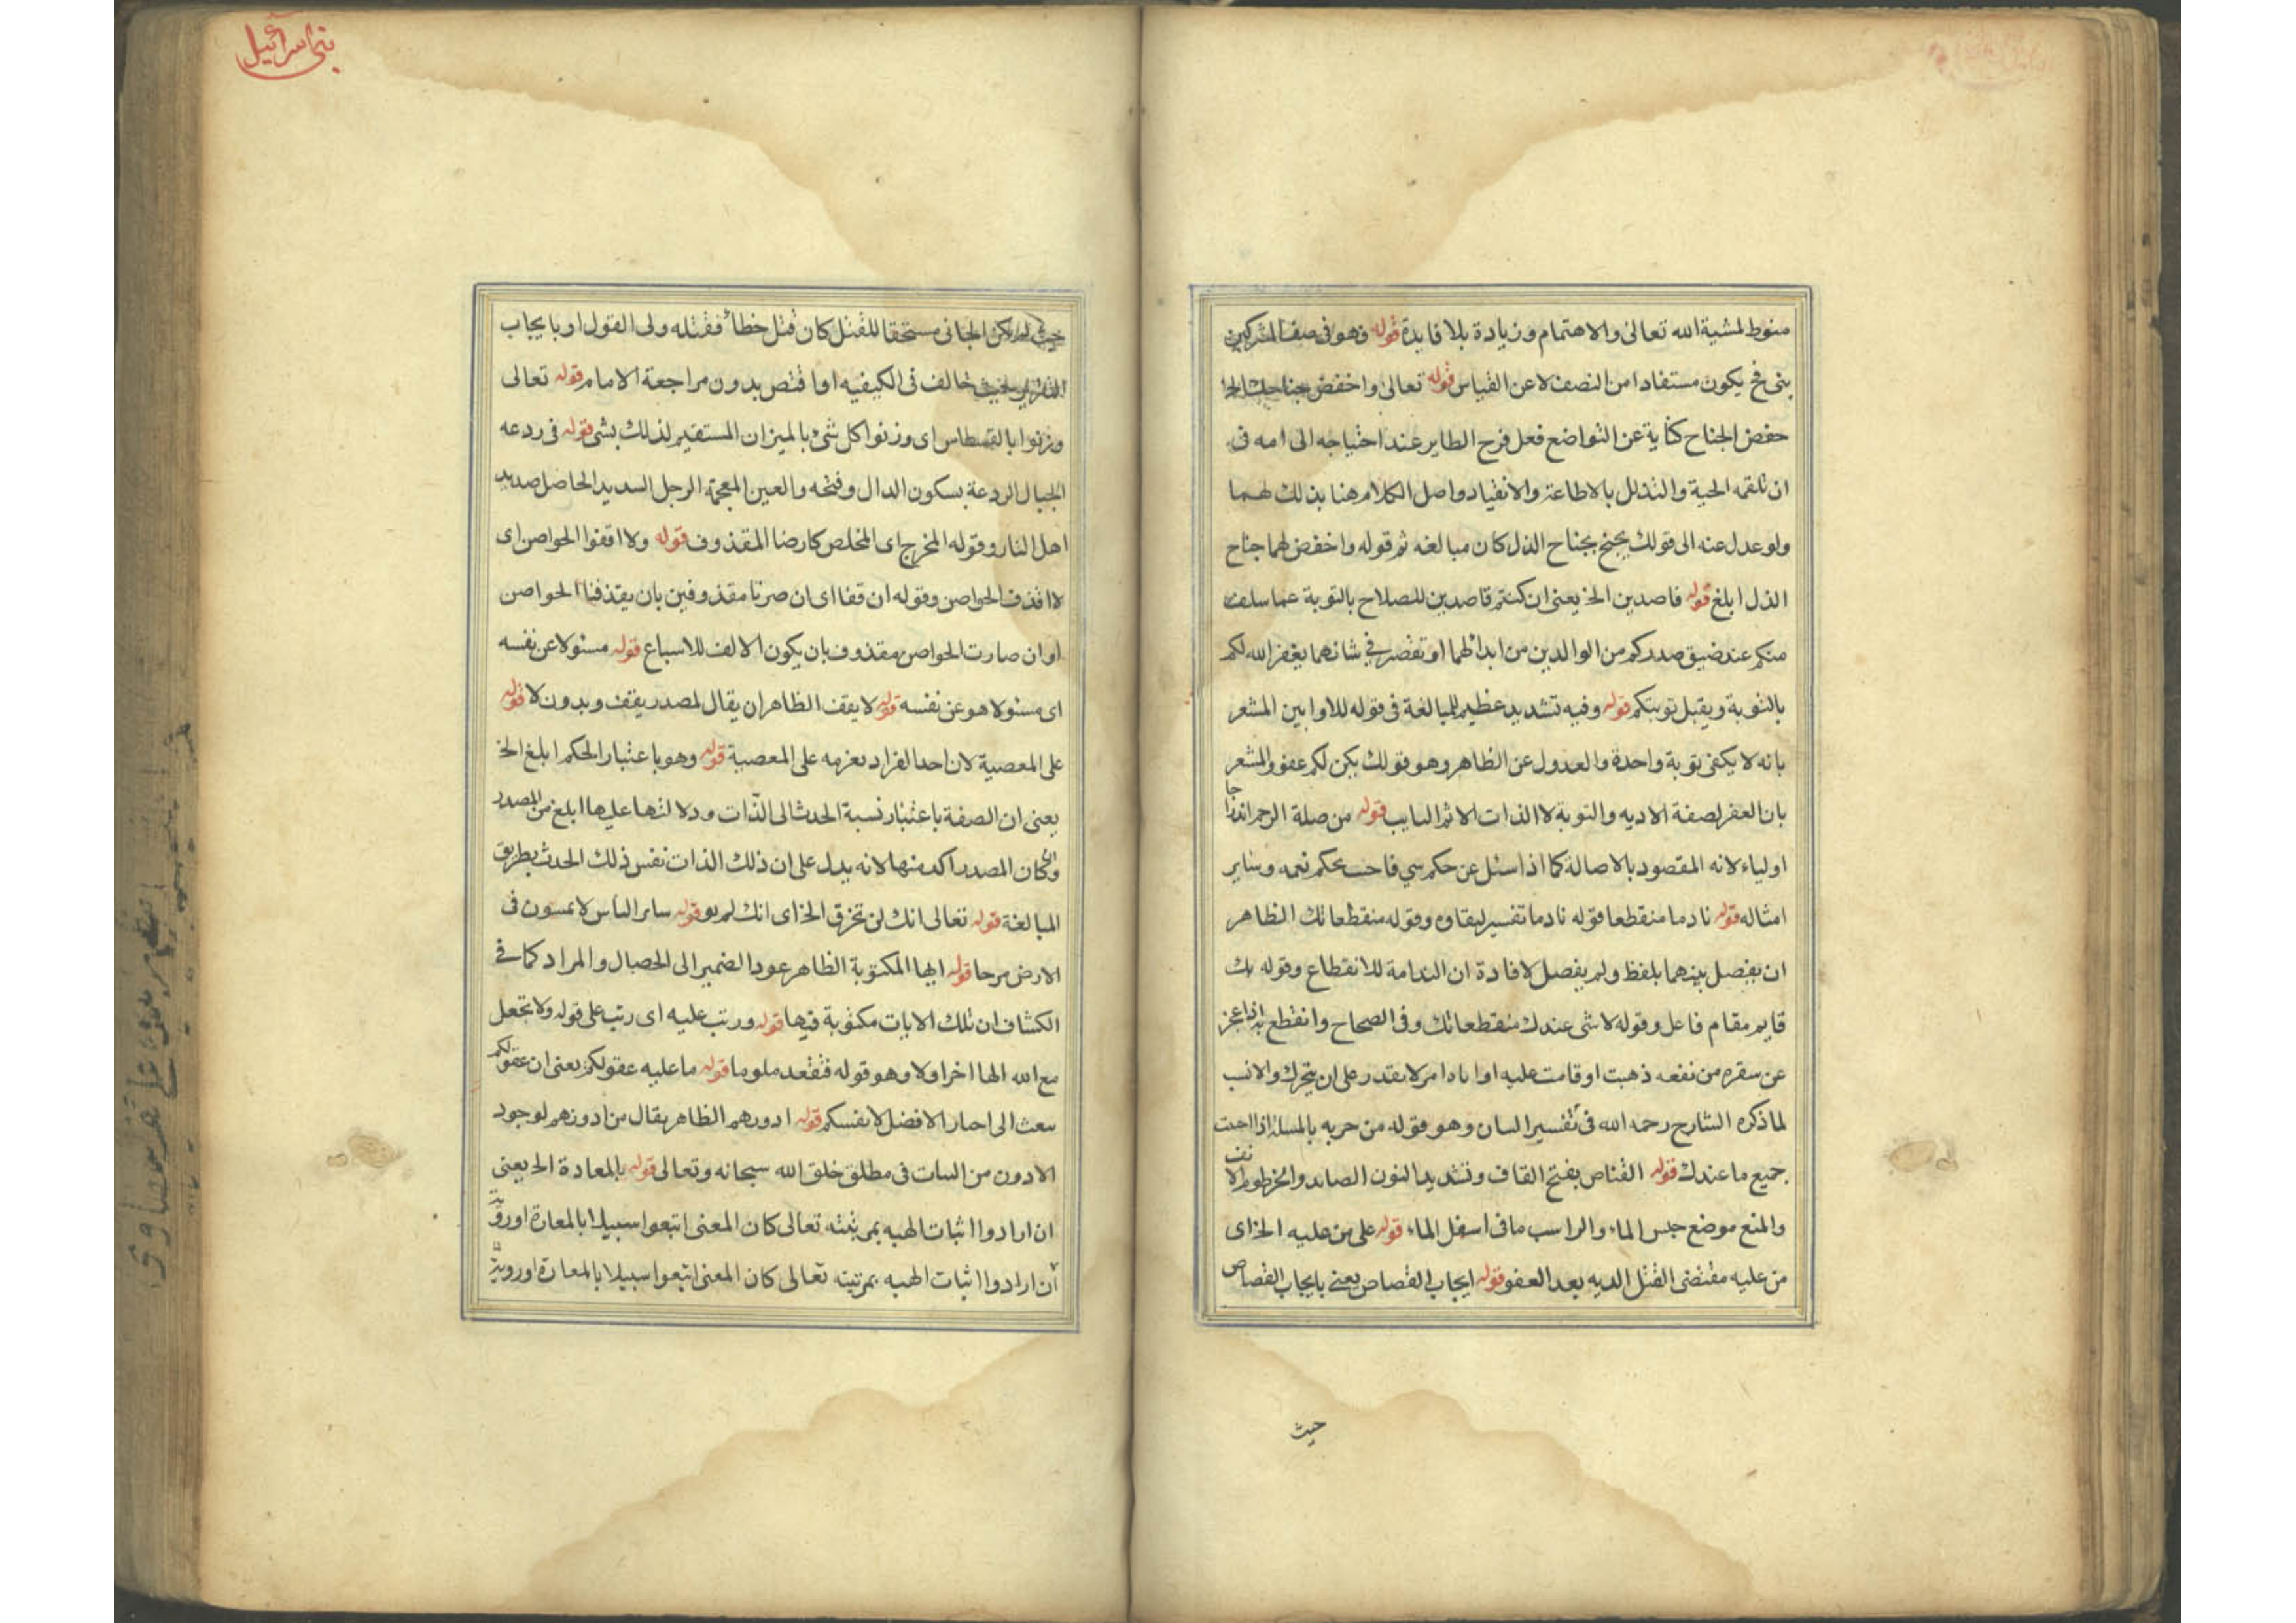 منوط لمشية الله تعالى والاهتمام وزيادة بلا فايدة قوله وهو فى صف المشركين
بنى فح يكون مستفادا من النصف لا عن القياس قوله تعالى واخفض جناحك
خفض الجناح كناية عن التواضع فعل فرح الطاير عند احتياجه الى امه فى
ان تلقمه الحبة والتذلل بالاطاعة والانقياد واصل الكلام هنا بذلك لهما
ولو عدل عنه الى قولك بجنح بجناح الذل كان مبالغه ثم قوله واخفض لهما جناح
الذل ابلغ قوله قاصدين الخ يعنى ان كنتم قاصدين للصلاح بالتوبة عما سلف
منكم عند ضيق صدركم من الوالدين من ابدائهما او تقصر فى شانهما يغفر الله لكم
بالتوبة ويقبل توبتكم قوله وفيه تشديد عظيم للمبالغة فى قوله للاوابين المشعر
بانه لا يكفى توبة واحدة والعدول عن الظاهر وهو قولك يكن لكم عفو والمشعر
بان العفر لصفة الاديه والتوبة لا الذات الاثم التايب قوله من صلة الرحم
اولياء لانه المقصود بالاصالة كما اذا سئل عن حكم سي فاحب بحكم نعمه وساير
امثاله قوله نادما منقطعا قوله نادما تفسير لبقاوه وقوله منقطعا تك الظاهر
ان يفصل بينهما بلفظ ولم يفصل لافادة ان الندامة للانقطاع وقوله بك
قايم مقام فاعل وقوله لا شى عندك منقطعا تك وفى الصحاح وانقطع به اذا عجز
عن سفره من نفعه ذهبت او قامت عليه او اناه امر لا يقدر على ان يتحرك والانسب
لما ذكره الشارح رحمه الله فى تفسير السان وهو قوله من حربه بالمسلة اذا
جميع ما عندك قوله القناص بفتح القاف وتشديد النون الصايد والخرطوم الانف
والمنع موضع حبس الماء والراسب ما فى اسفل الماء قوله على من عليه الخ اى
من عليه مقتضى القتل الديه بعد العفو قوله ايجاب القصاص يعنى بايجاب القصاص
حيث
بنى اسرآئيل
حيث لم يكن الجانى مستحقا للقتل كان قتل خطأ فقتله ولى القول او بايجاب
خالف فى الكيفيه او اقتص بدون مراجعة الامام قوله تعالى
وزنوا بالقسطاس اى وزنوا كل شئ بالميزان المستقيم لذلك بشى قوله فى ردعه
الجبال الردعة بسكون الدال وفتحه والعين المعجمة الرجل السديد الحاصل صديد
اهل النار وقوله المخرج اى المخلص كارضا المقذوف قوله ولا اقفوا الحواصن اى
لا اقذف الحواصن وقوله ان قفا اى ان صرنا مقذوفين بان يقذفنا الحواصن
او ان صارت الحواصن مقذوف بان يكون الالف للاسباع قوله مسئولا عن نفسه
اى مسئولا هو عن نفسه قوله لا يقف الظاهر ان يقال لمصدر يقف وبدون لا قوله
على المعصية لان احد افراد بعزمه على المعصية قوله وهو باعتبار الحكم ابلغ الخ
يعنى ان الصفة باعتبار نسبة الحدث الى الذات ودلالتها عليها ابلغ من المصدر
وان كان المصدر اكد منها لانه يدل على ان ذلك الذات نفس ذلك الحدث بطريق
المبالغة قوله تعالى انك لن تخرق الخ اى انك لم قوله ساير الناس لا يمسون فى
الارض مرحا قوله ايها المكتوبة الظاهر عود الضمير الى الخصال والمراد كما فى
الكشاف ان تلك الايات مكتوبة فيها قوله ورتب عليه اى رتب على قوله ولا تجعل
مع الله الها اخر اولا وهو قوله فتقعد ملوما قوله ما عليه عقولكم يعنى ان عقولكم
سعث الى احبار الافضل لانفسكم قوله ادورهم الظاهر يقال من ادورهم لوجود
الادون من السات فى مطلق خلق الله سبحانه وتعالى قوله بالمعادة الخ يعنى
ان ارادوا اثبات الهيه بمرتبته تعالى كان المعنى ابتغوا سبيلا بالمعازة او
ان ارادوا اثبات الهيه بمرتبته تعالى كان المعنى ابتغوا سبيلا بالمعازة او